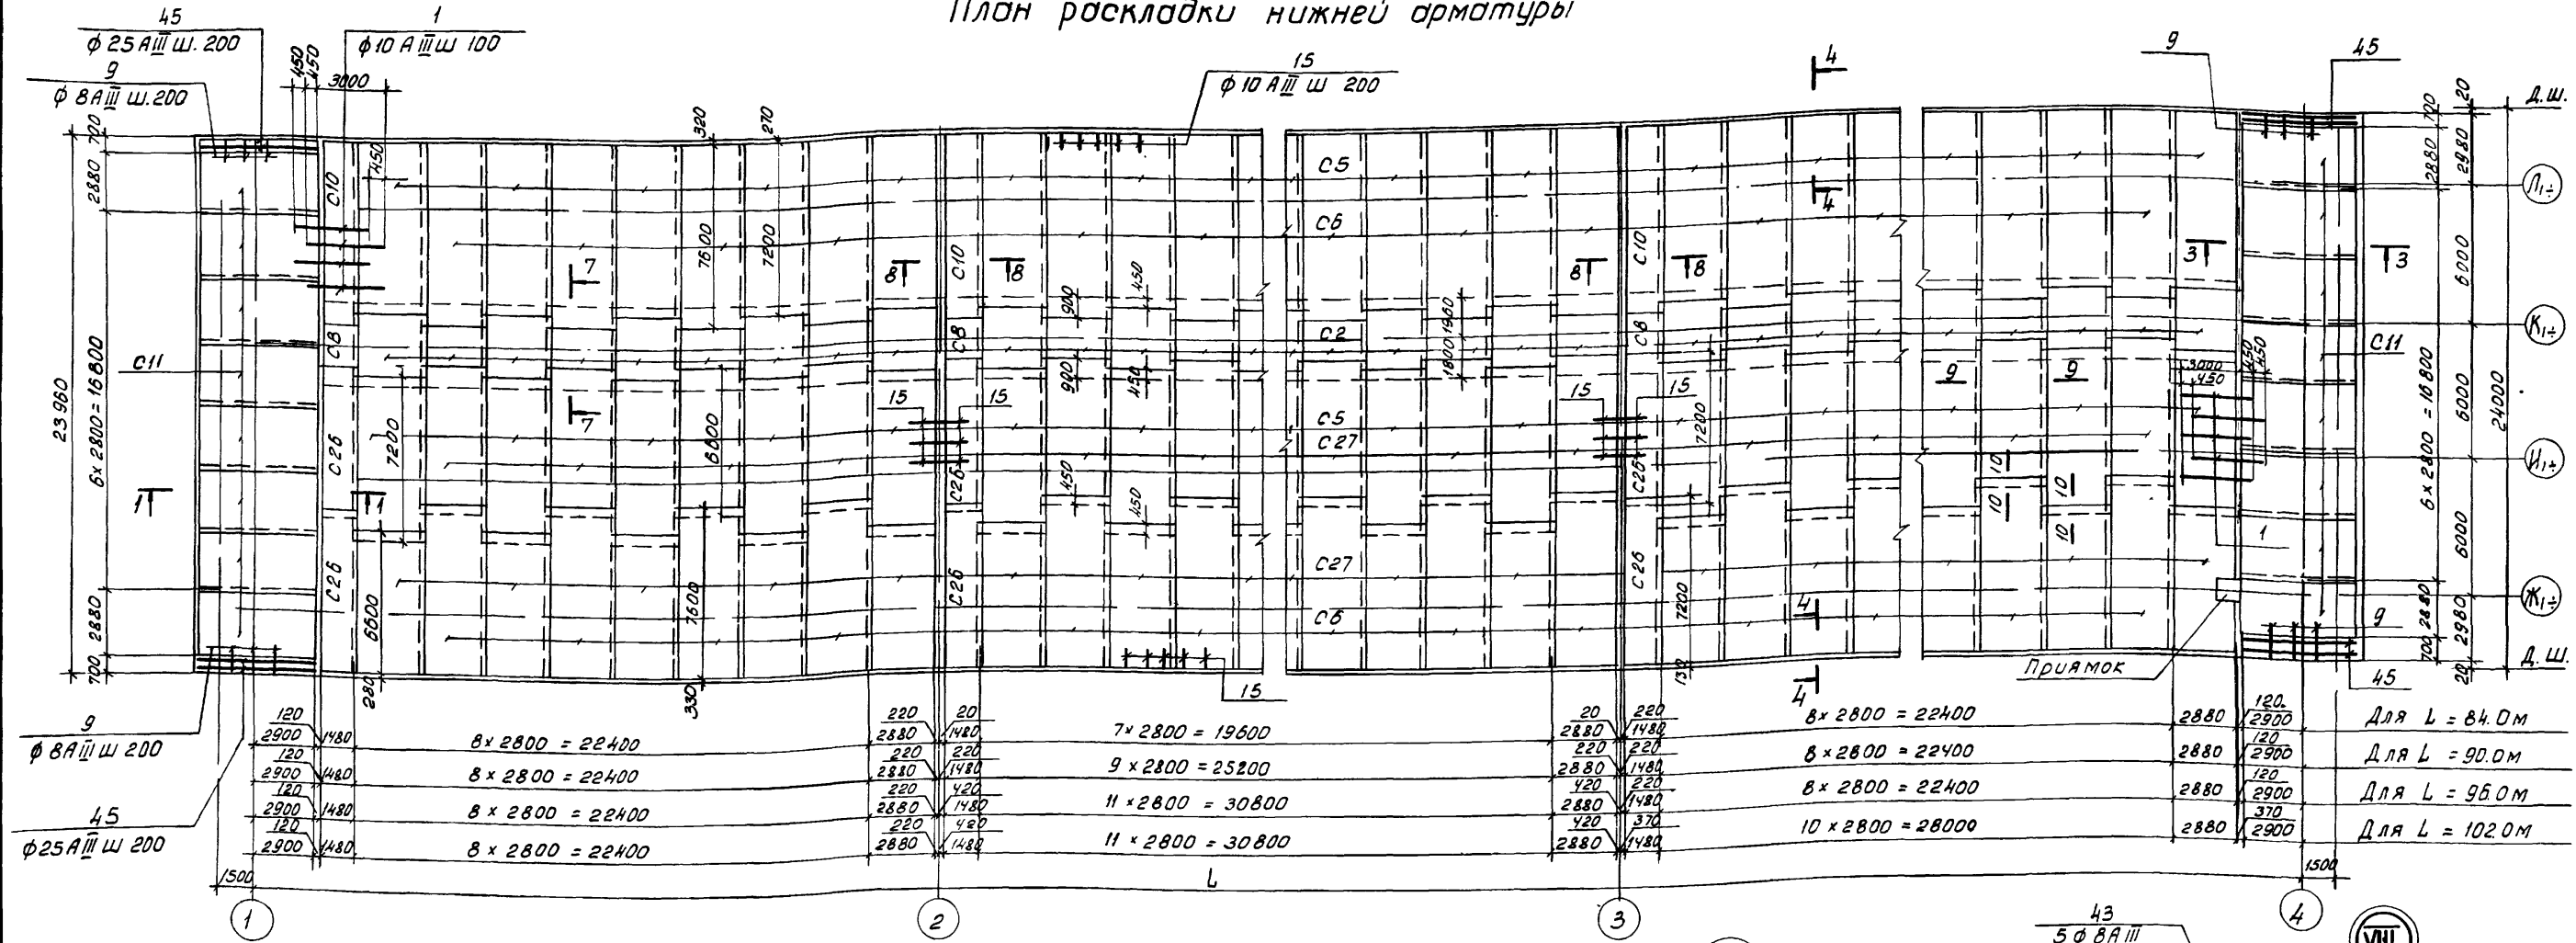 План раскладки нижней арматуры
45
ф 25 А III Ш. 200
1
ф 10 А III Ш 100
9
ф 8 А III Ш. 200
15
ф 10 А III Ш 200
4
9
45
450
450
3000
450
320
270
700
20
Д.Ш.
700
2880
6 x 2800 = 16800
23960
2880
700
С10
С8
С26
С26
С11
7
7
7600
7200
7200
6600
6600
7600
280
330
1
1
8
8
С10
С8
С26
С26
900
450
900
450
450
450
15
15
С5
С6
С2
С5
С27
С27
С6
1960
1800
8
8
С10
С8
С26
С26
15
15
7200
7200
130
4
4
4
9
9
10
10
10
10
3
3
3000
450
450
450
1
С11
2880
2980
6000
6000
6000
2980
6 x 2800 = 16800
24000
2880
700
20
Л1÷
К1÷
И1÷
Ж1÷
Д.Ш.
Приямок
9
45
15
9
ф 8 А III Ш 200
45
ф 25 А III Ш 200
120
2900 1480
8 x 2800 = 22400
220
2880
20
1480
7 x 2800 = 19600
20
2880
220
1480
8 x 2800 = 22400
2880
120
2900
Для L = 84.0 м
120
2900 1480
8 x 2800 = 22400
220
2880
220
1480
9 x 2800 = 25200
220
2880
220
1480
8 x 2800 = 22400
2880
120
2900
Для L = 90.0 м
120
2900 1480
8 x 2800 = 22400
220
2880
420
1480
11 x 2800 = 30800
420
2880
220
1480
8 x 2800 = 22400
2880
120
2900
Для L = 96.0 м
120
2900 1480
8 x 2800 = 22400
220
2880
420
1480
11 x 2800 = 30800
420
2880
370
1480
10 x 2800 = 28000
2880
370
2900
Для L = 102.0 м
1500
L
1500
1
2
3
4
43
5 ф 8 А III
VIII